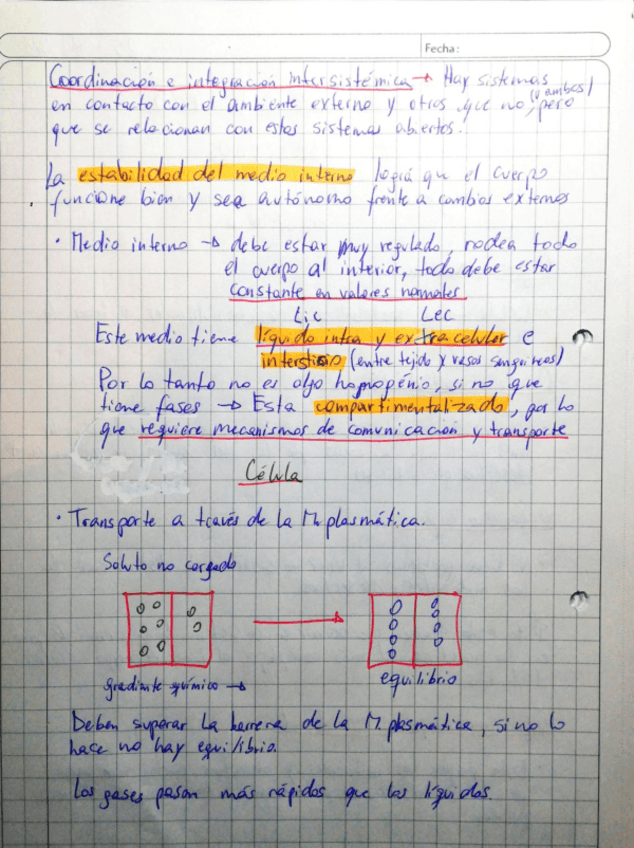 Fecha:
Coordinación e integración Intersistémica → Hay sistemas
(o ambos)
en contacto con el ambiente externo y otros que no, pero
que se relacionan con estos sistemas abiertos.
La estabilidad del medio interno logra que el cuerpo
funcione bien y sea autónomo frente a cambios externos
• Medio interno → debe estar muy regulado, rodea todo
el cuerpo al interior, todo debe estar
constante en valores normales
Lic Lec
Este medio tiene líquido intra y extracelular e
intersticio (entre tejido y vasos sanguíneos)
Por lo tanto no es algo homogénio, si no que
tiene fases → Esta compartimentalizado, por lo
que requiere mecanismos de comunicación y transporte
Célula
• Transporte a través de la M. plasmática.
Soluto no cargado
gradiante químico → equilibrio
Deben superar la barrera de la M. plasmática, si no lo
hace no hay equilibrio.
Los gases pasan más rápidos que los líquidos.